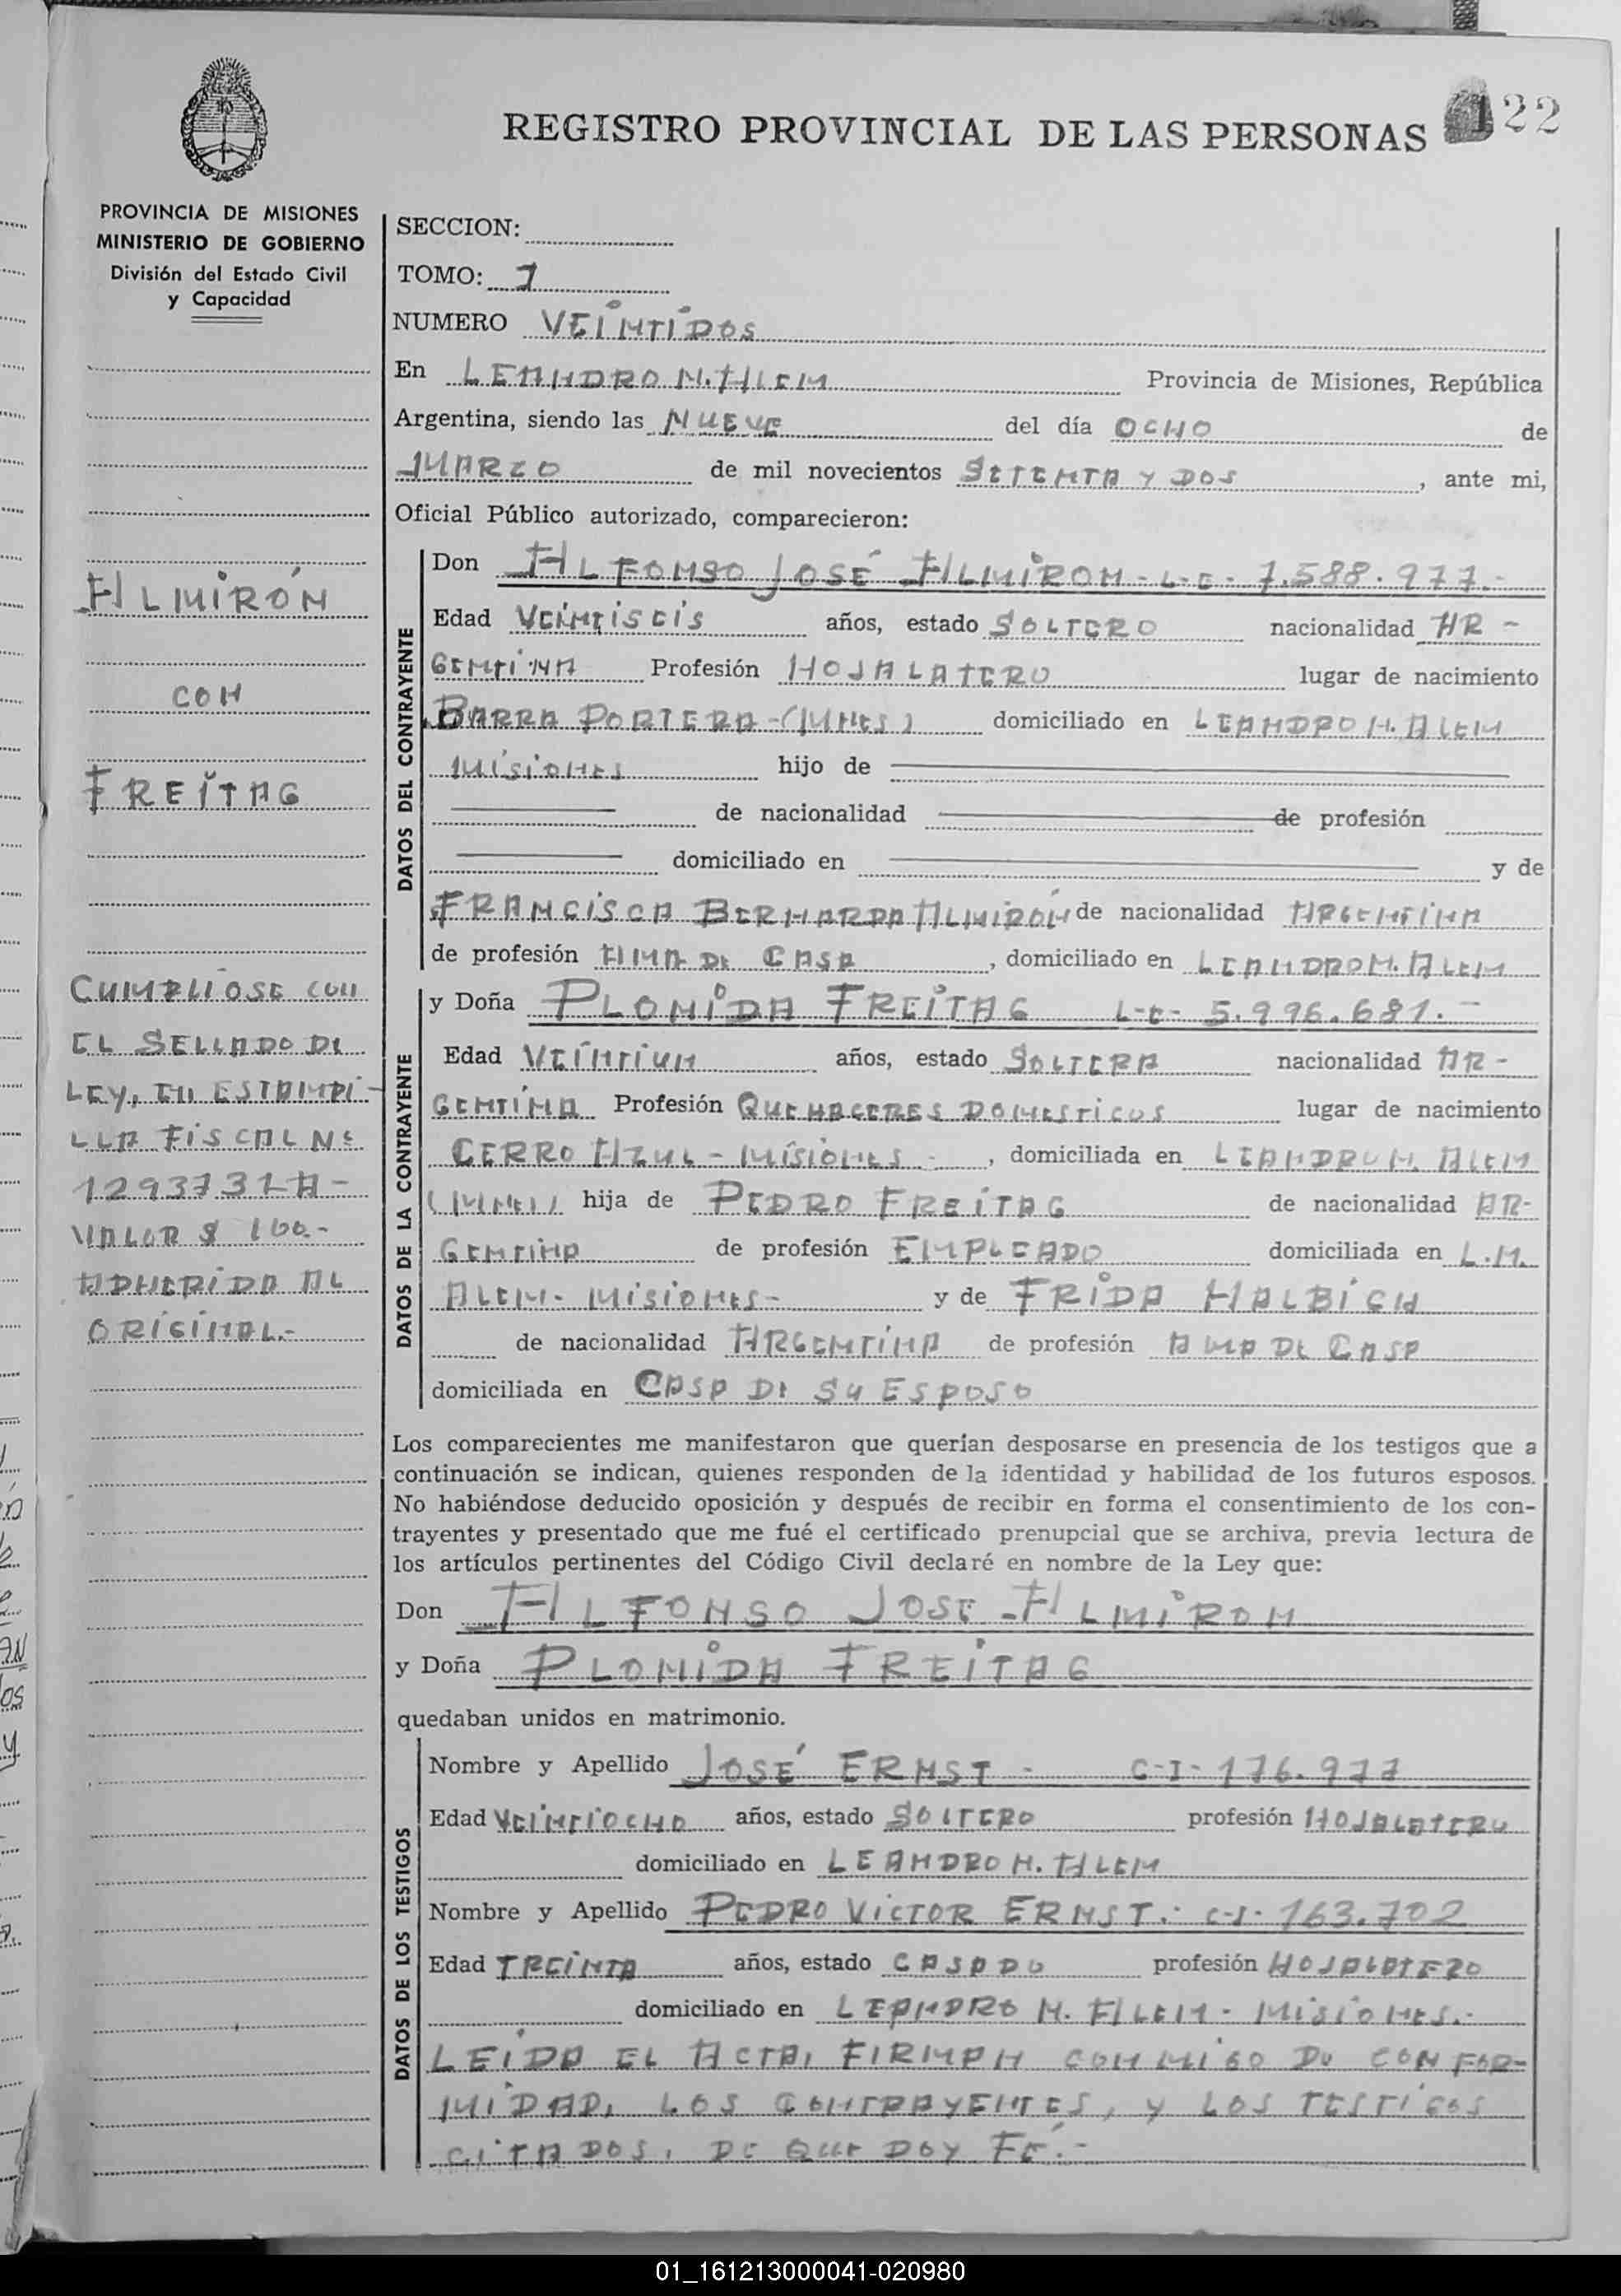 REGISTRO PROVINCIAL DE LAS PERSONAS 122
PROVINCIA DE MISIONES
MINISTERIO DE GOBIERNO
División del Estado Civil
y Capacidad
ALMIRÓN
CON
FREITAG
CUMPLIOSE CON
EL SELLADO DE
LEY, EN ESTAMPI-
LLA FISCAL Nº
1293731-A-
VALOR $ 100.-
ADHERIDA AL
ORIGINAL.-
SECCION:
TOMO: I
NUMERO VEINTIDOS
En LEANDRO N. ALEM Provincia de Misiones, República
Argentina, siendo las NUEVE del día OCHO de
MARZO de mil novecientos SETENTA Y DOS, ante mi,
Oficial Público autorizado, comparecieron:
DATOS DEL CONTRAYENTE
Don ALFONSO JOSÉ ALMIRON - L-E- 7.588.977.-
Edad VEINTISEIS años, estado SOLTERO nacionalidad AR-
GENTINA Profesión HOJALATERO lugar de nacimiento
BARRA PORTERA-(MNES) domiciliado en LEANDRO N. ALEM
MISIONES hijo de
de nacionalidad de profesión
domiciliado en y de
FRANCISCA BERNARDA ALMIRÓN de nacionalidad ARGENTINA
de profesión AMA DE CASA, domiciliado en LEANDRO N. ALEM
DATOS DE LA CONTRAYENTE
y Doña PLONIDA FREITAG L-C- 5.996.681.-
Edad VEINTIUN años, estado SOLTERA nacionalidad AR-
GENTINA Profesión QUEHACERES DOMESTICOS lugar de nacimiento
CERRO AZUL - MISIONES -, domiciliada en LEANDRO N. ALEM
(MNES) hija de PEDRO FREITAG de nacionalidad AR-
GENTINA de profesión EMPLEADO domiciliada en L.N.
ALEM- MISIONES- y de FRIDA HALBICH
de nacionalidad ARGENTINA de profesión AMA DE CASA
domiciliada en CASA DE SU ESPOSO
Los comparecientes me manifestaron que querían desposarse en presencia de los testigos que a
continuación se indican, quienes responden de la identidad y habilidad de los futuros esposos.
No habiéndose deducido oposición y después de recibir en forma el consentimiento de los con-
trayentes y presentado que me fué el certificado prenupcial que se archiva, previa lectura de
los artículos pertinentes del Código Civil declaré en nombre de la Ley que:
Don ALFONSO JOSE ALMIRON
y Doña PLONIDA FREITAG
quedaban unidos en matrimonio.
DATOS DE LOS TESTIGOS
Nombre y Apellido JOSÉ ERNST - C-I- 176.977
Edad VEINTIOCHO años, estado SOLTERO profesión HOJALATERO
domiciliado en LEANDRO N. ALEM
Nombre y Apellido PEDRO VICTOR ERNST.- C-I- 163.702
Edad TREINTA años, estado CASADO profesión HOJALATERO
domiciliado en LEANDRO N. ALEM - MISIONES.-
LEIDA EL ACTA, FIRMAN CONMIGO DE CONFOR-
MIDAD, LOS CONTRAYENTES, Y LOS TESTIGOS
CITADOS, DE QUE DOY FÉ.-
01_161213000041-020980